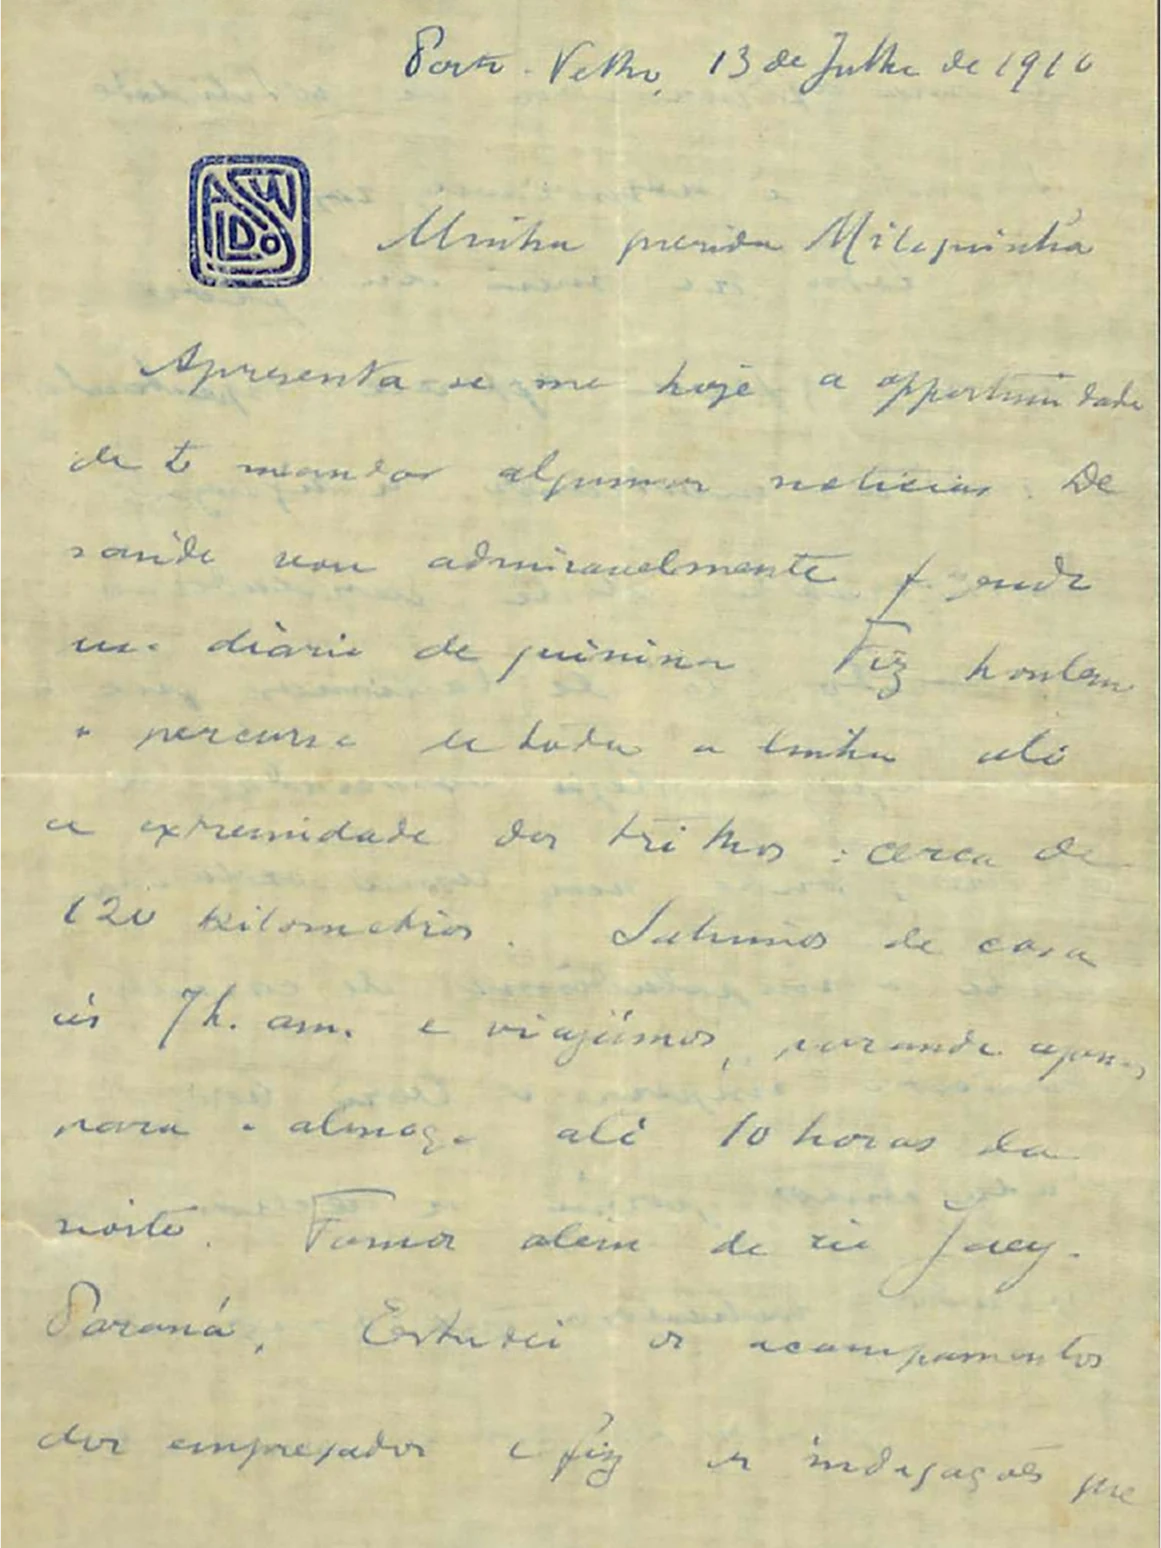 Porto-Velho, 13 de Julho de 1910
Minha querida Miloquinha
Apresenta-se me hoje a opportunidade
de te mandar algumas noticias. De
saude vou admiravelmente fazendo
uso diario de quinina Fiz hontem
o percurso de toda a linha até
a extremidade dos trilhos: cerca de
120 kilometros. Sahimos de casa
ás 7 h. am. e viajámos, parando apenas
para o almoço até 10 horas da
noite. Fomos alem do rio Jacy-
Paraná. Estudei os acampamentos
dos empregados e fiz as indagações que